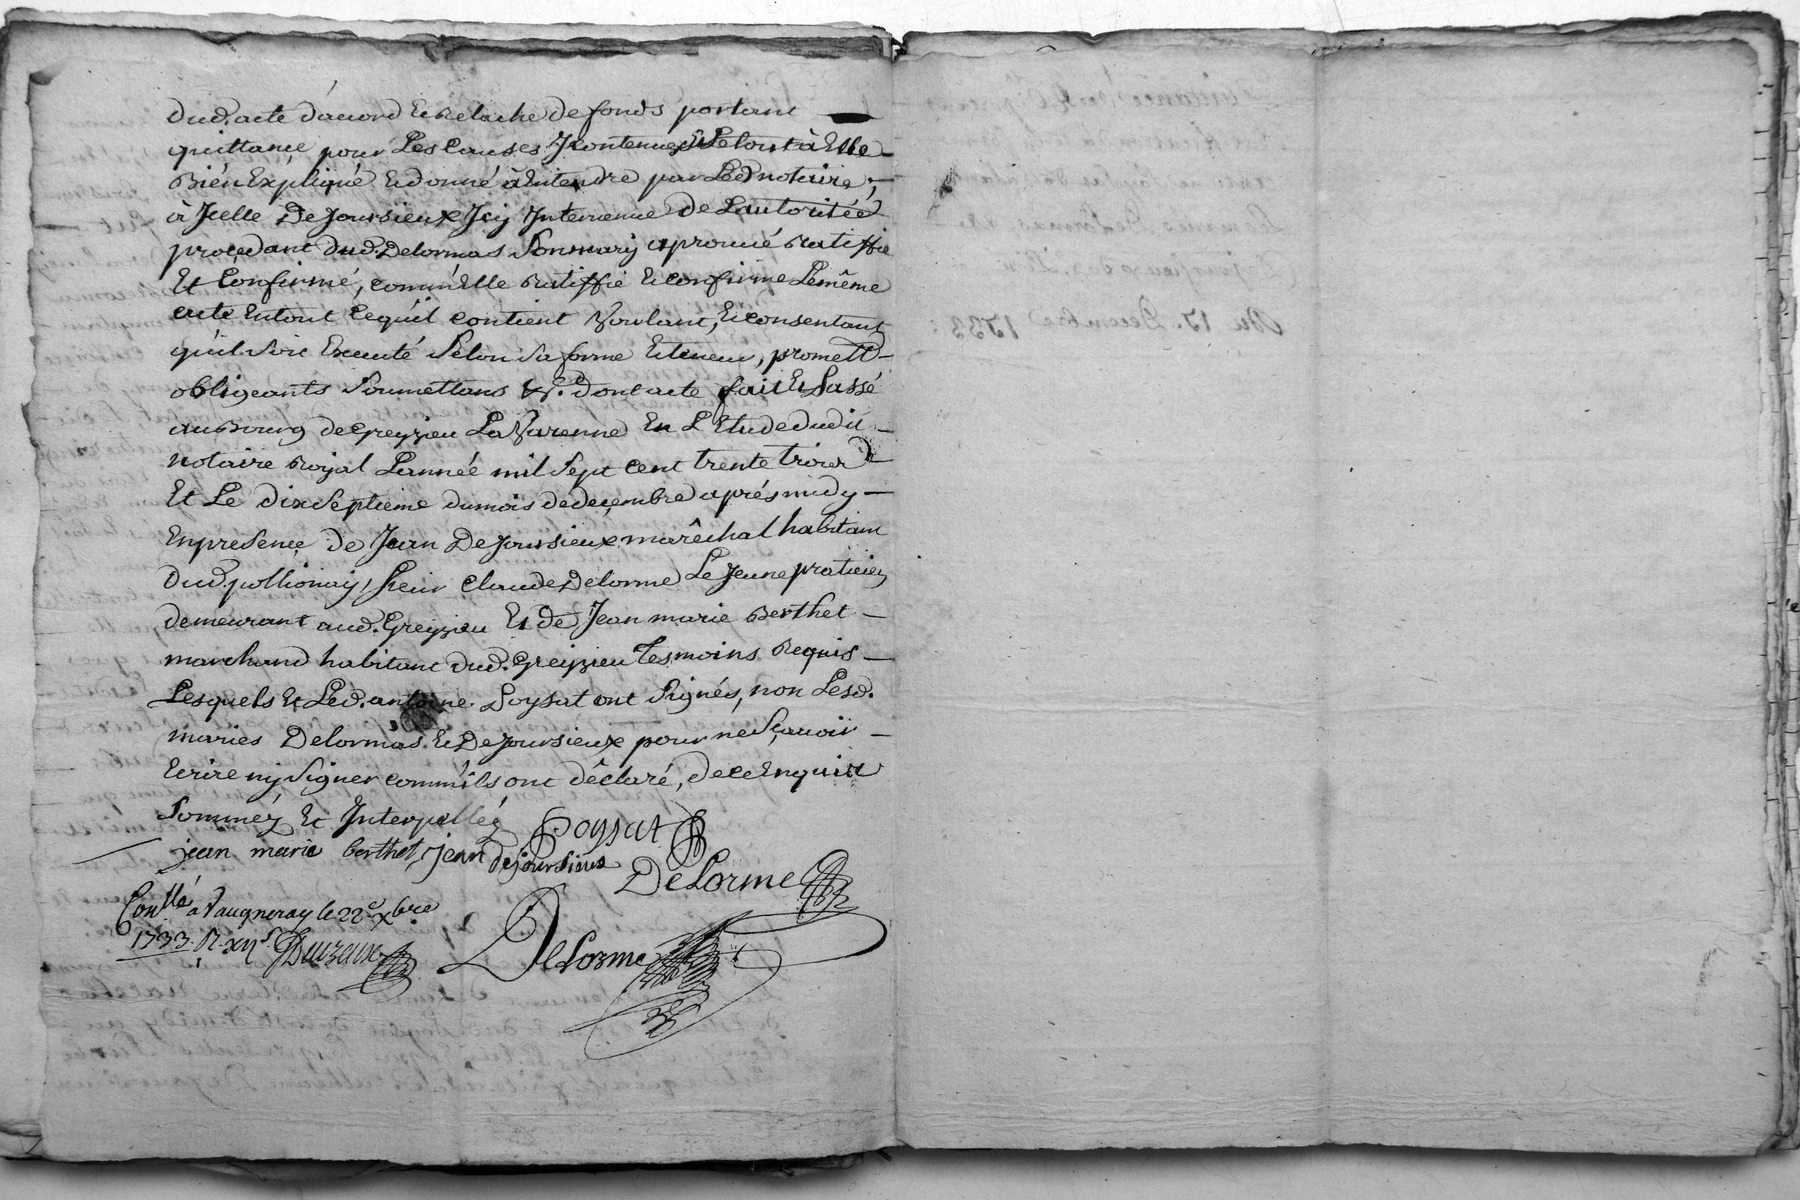 dud. acte d'acord et Relache de fonds portant
quittance pour Les Causes Jcontenues, et Le tout à Elle
Bién Expliqué Et donné à Entendre par Led notaire;
à Jcelle De joursieux Jcy Jntervenue de Lautoritéé
procedant dud. Delormas Son mary aprouvé Ratiffié
Et Confirmé, comm'Elle Ratiffie Et confirme Le même
acte En tout Ce quil contient Voulant, Et consentant
quil Soit Executé Selon Sa forme Et teneur, promett-
obligeants Soumettans &c. Dont acte fait Et Passé
au Bourg de Greyzieu La Varenne En L'Etude dudit
notaire Royal Lannée mil Sept Cent trente trois
Et Le dix Septieme du mois de deçembre aprés midy
En presençe de Jean De joursieux marêchal habitant
dud. pollionay, Sieur Claude Delorme Le Jeune praticien
demeurant aud. Greyzieu Et de Jean marie Berthet
marchand habitant dud. Greyzieu Tesmoins Requis
Lesquels Et Led. antoine Poysat ont Signés, non Lesd.
mariés Delormas Et De joursieux pour ne Sçavoir
Ecrire ny Signer comm'ils ont dêclaré, de ce Enquis
Sommés Et Interpellés
Poysat
jean marie berthet jean dejoursieux
DeLorme
Con.llé a Vaugneray le 22e xbre
1733. R. xij s.
DeLorme
Du 17. Decembre 1733